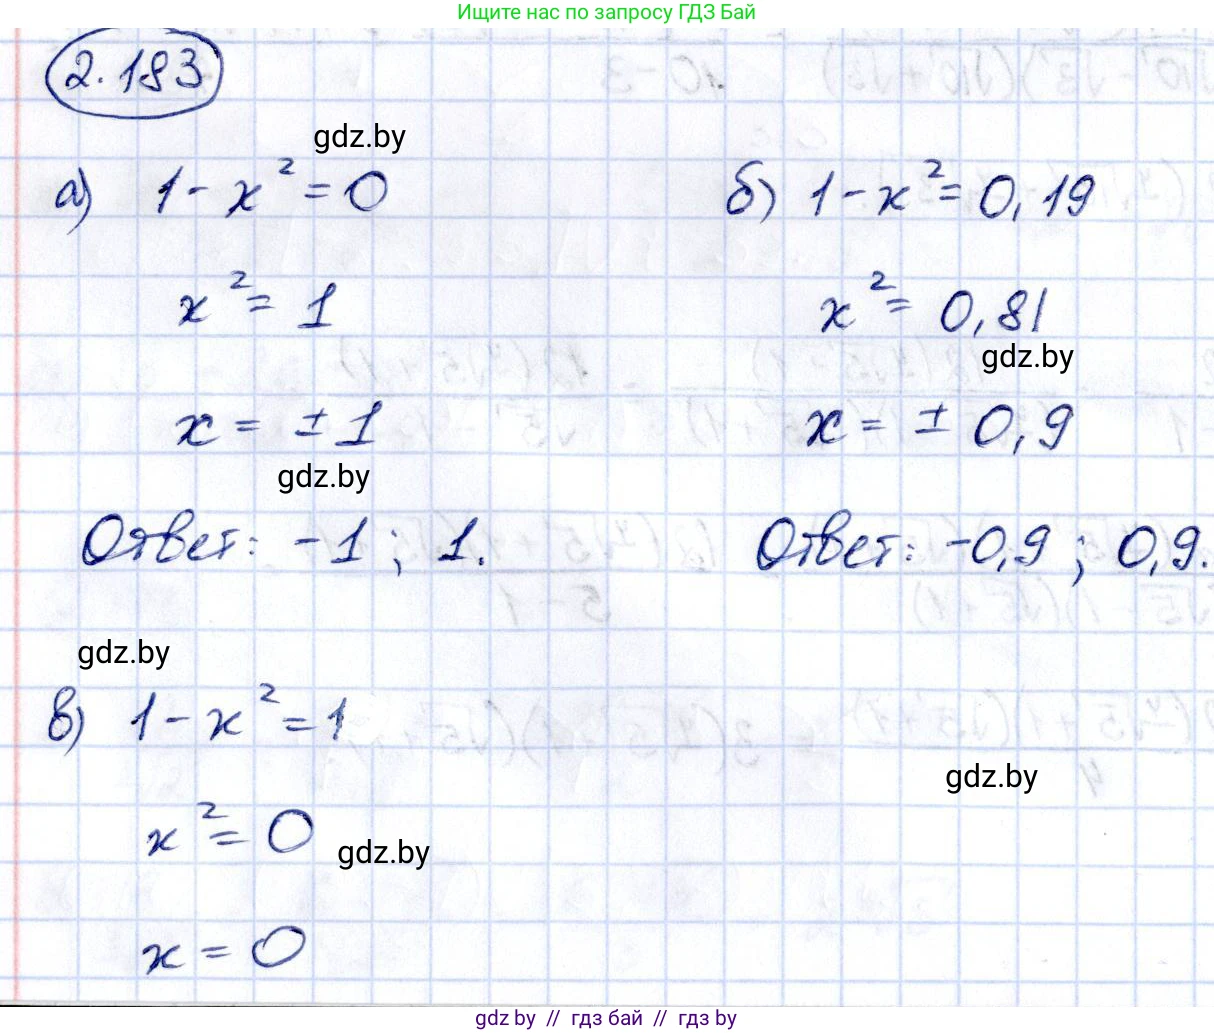 Ищите нас по запросу ГДЗ Бай
2.183
gdz.by
а) 1 - x² = 0
x² = 1
x = ± 1
gdz.by
Ответ: -1 ; 1.
б) 1 - x² = 0,19
x² = 0,81
gdz.by
x = ± 0,9
Ответ: -0,9 ; 0,9.
gdz.by
в) 1 - x² = 1
gdz.by
x² = 0
gdz.by
x = 0
gdz by // гдз бай // гдз by